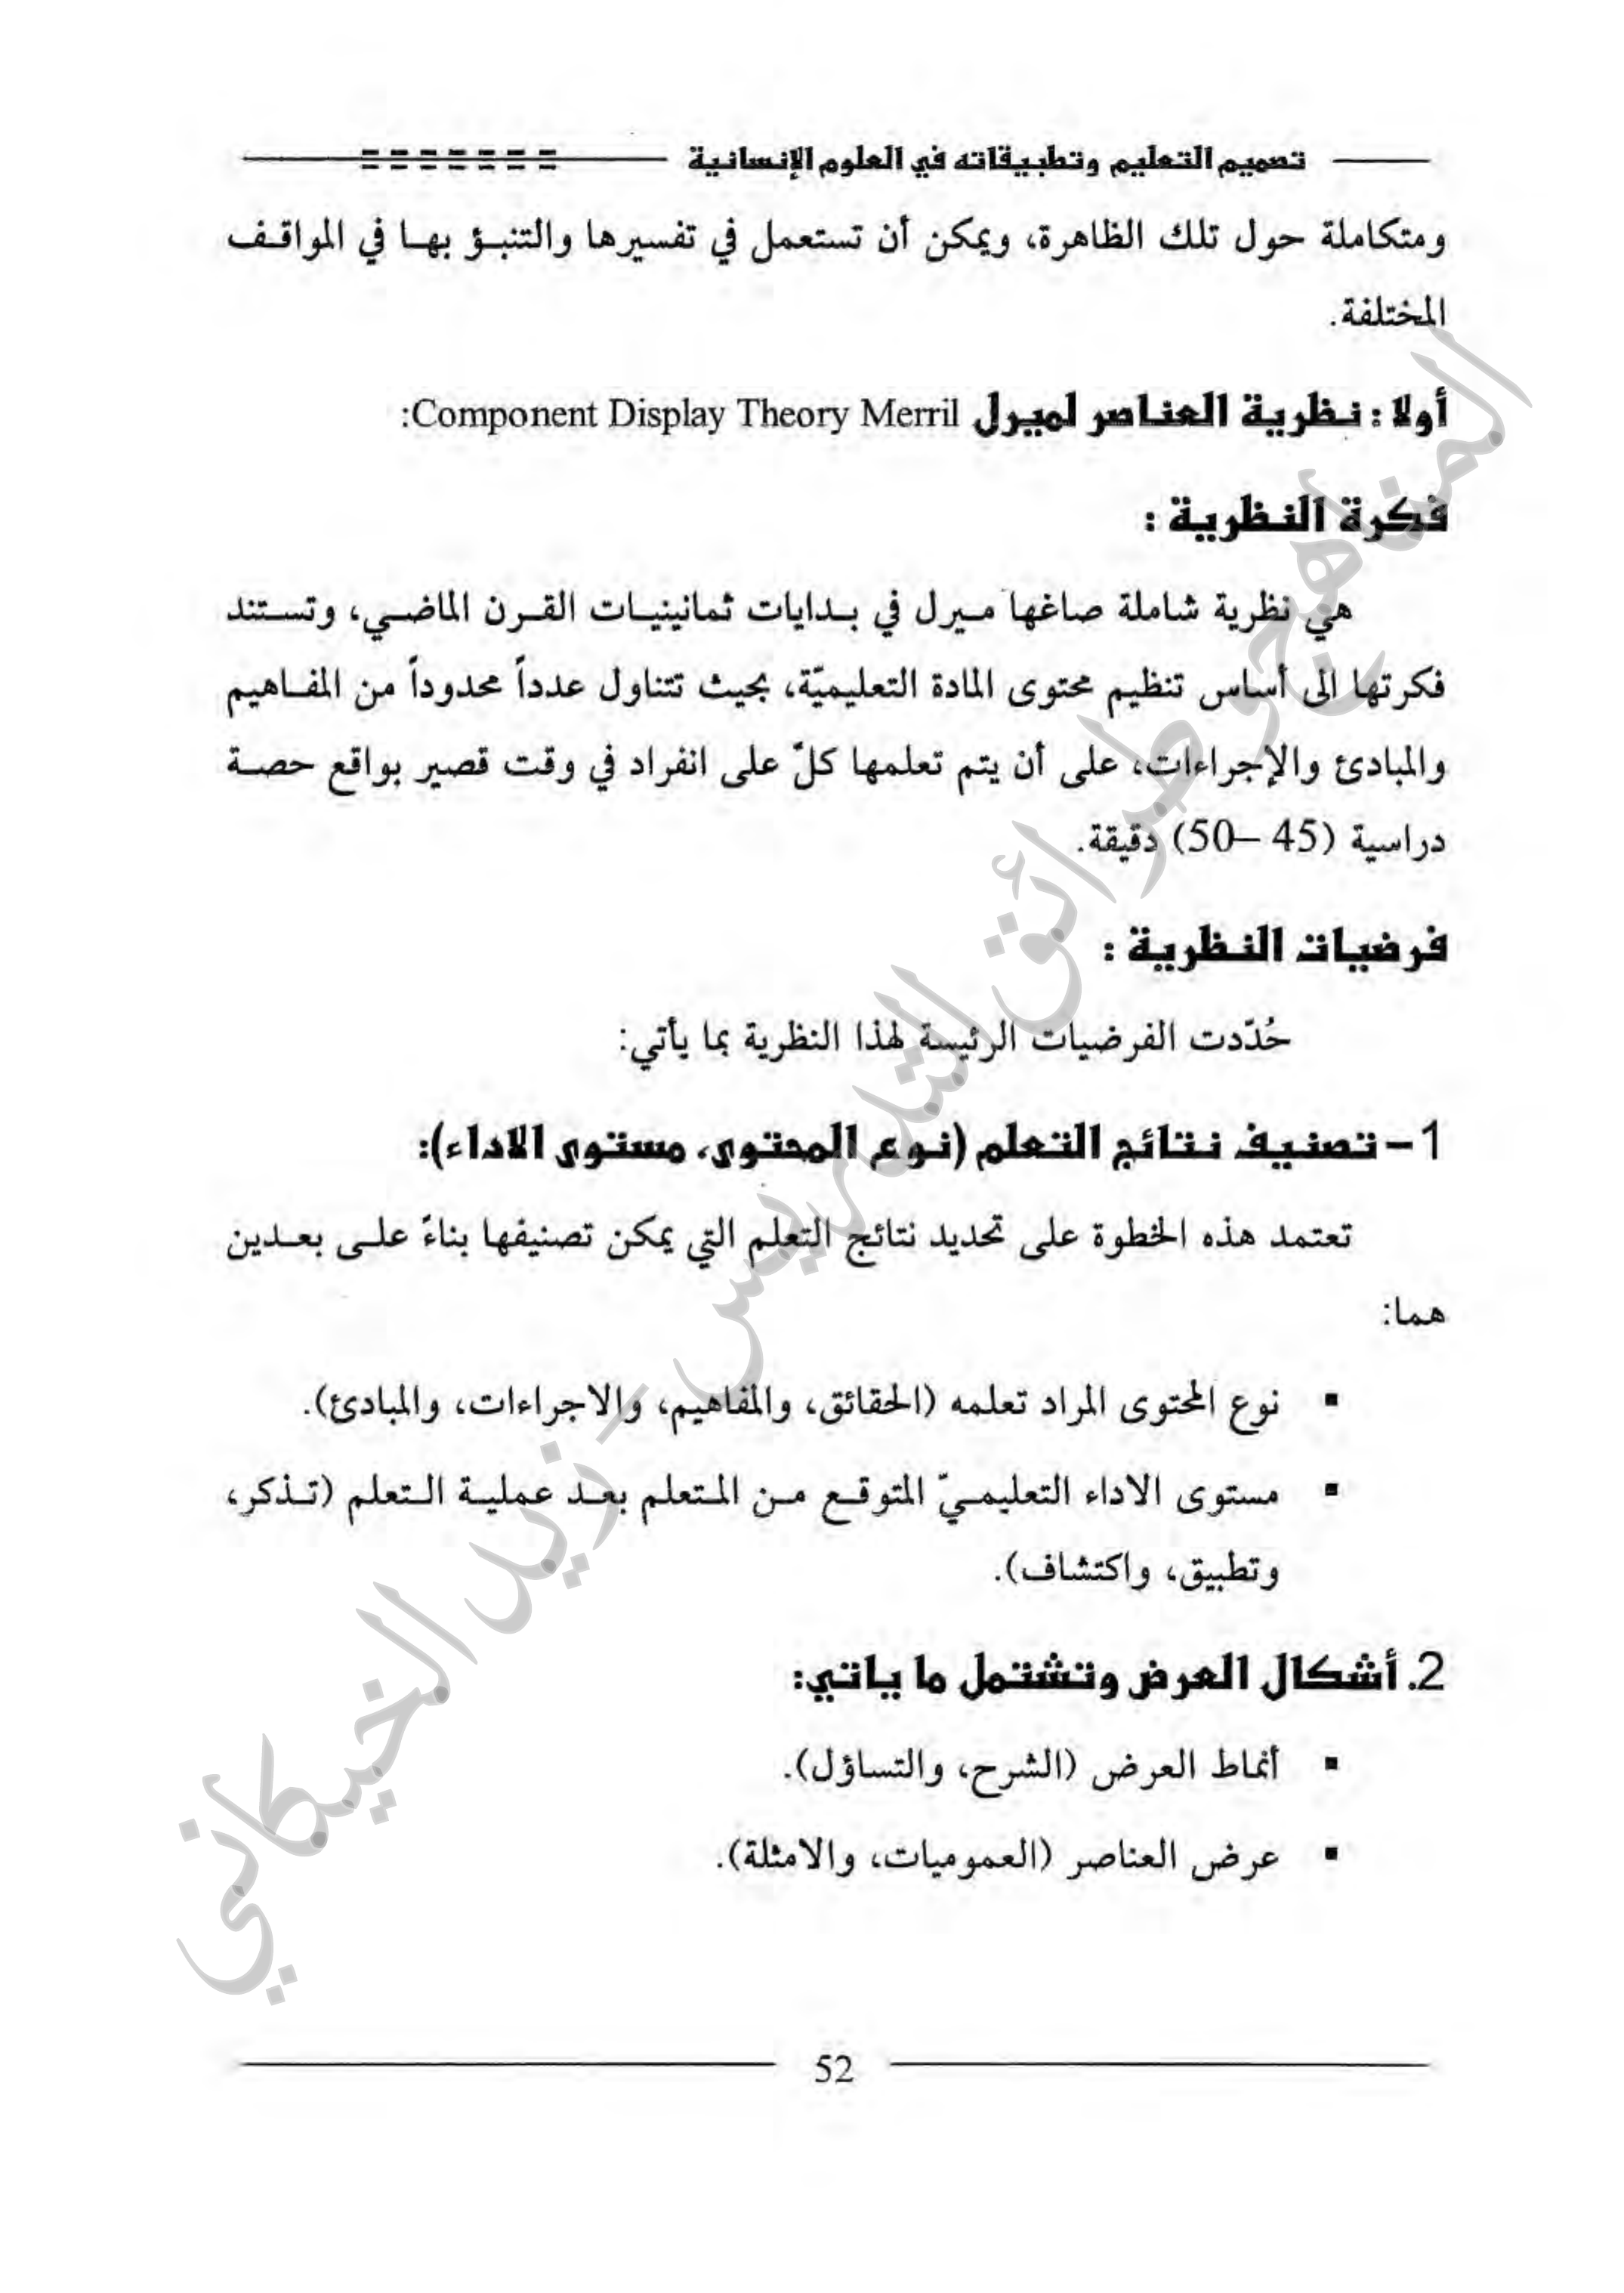 تصميم التعليم وتطبيقاته في العلوم الإنسانية
ومتكاملة حول تلك الظاهرة، ويمكن أن تستعمل في تفسيرها والتنبؤ بها في المواقف
المختلفة.
أولا : نظرية العناصر لميرل Component Display Theory Merril:
فكرة النظرية :
هي نظرية شاملة صاغها ميرل في بدايات ثمانينيات القرن الماضي، وتستند
فكرتها الى أساس تنظيم محتوى المادة التعليميّة، بحيث تتناول عدداً محدوداً من المفاهيم
والمبادئ والإجراءات، على أن يتم تعلمها كلّ على انفراد في وقت قصير بواقع حصة
دراسية (45 –50) دقيقة.
فرضيات النظرية :
حُدّدت الفرضيات الرئيسة لهذا النظرية بما يأتي:
1– تصنيف نتائج التعلم (نوع المحتوى، مستوى الاداء):
تعتمد هذه الخطوة على تحديد نتائج التعلم التي يمكن تصنيفها بناءً على بعدين
هما:
▪ نوع المحتوى المراد تعلمه (الحقائق، والمفاهيم، والاجراءات، والمبادئ).
▪ مستوى الاداء التعليميّ المتوقع من المتعلم بعد عملية التعلم (تذكر،
وتطبيق، واكتشاف).
2. أشكال العرض وتشتمل ما ياتي:
▪ أنماط العرض (الشرح، والتساؤل).
▪ عرض العناصر (العموميات، والامثلة).
52
المناهج وطرائق التدريس - زيد الخيكاني